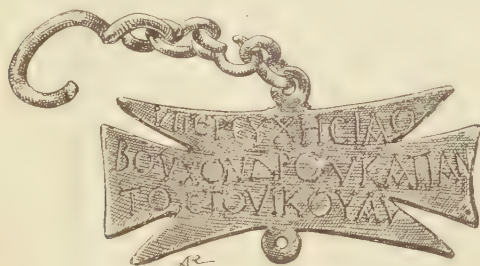 ΥΠΕΡΕΥΧΗϹΙΑΟ
ΒΟΥΧΟΝΔΡΟΥΚΑΙΠΑΝ
ΤΟϹΤΟΥΙΚΟΥΑΥ